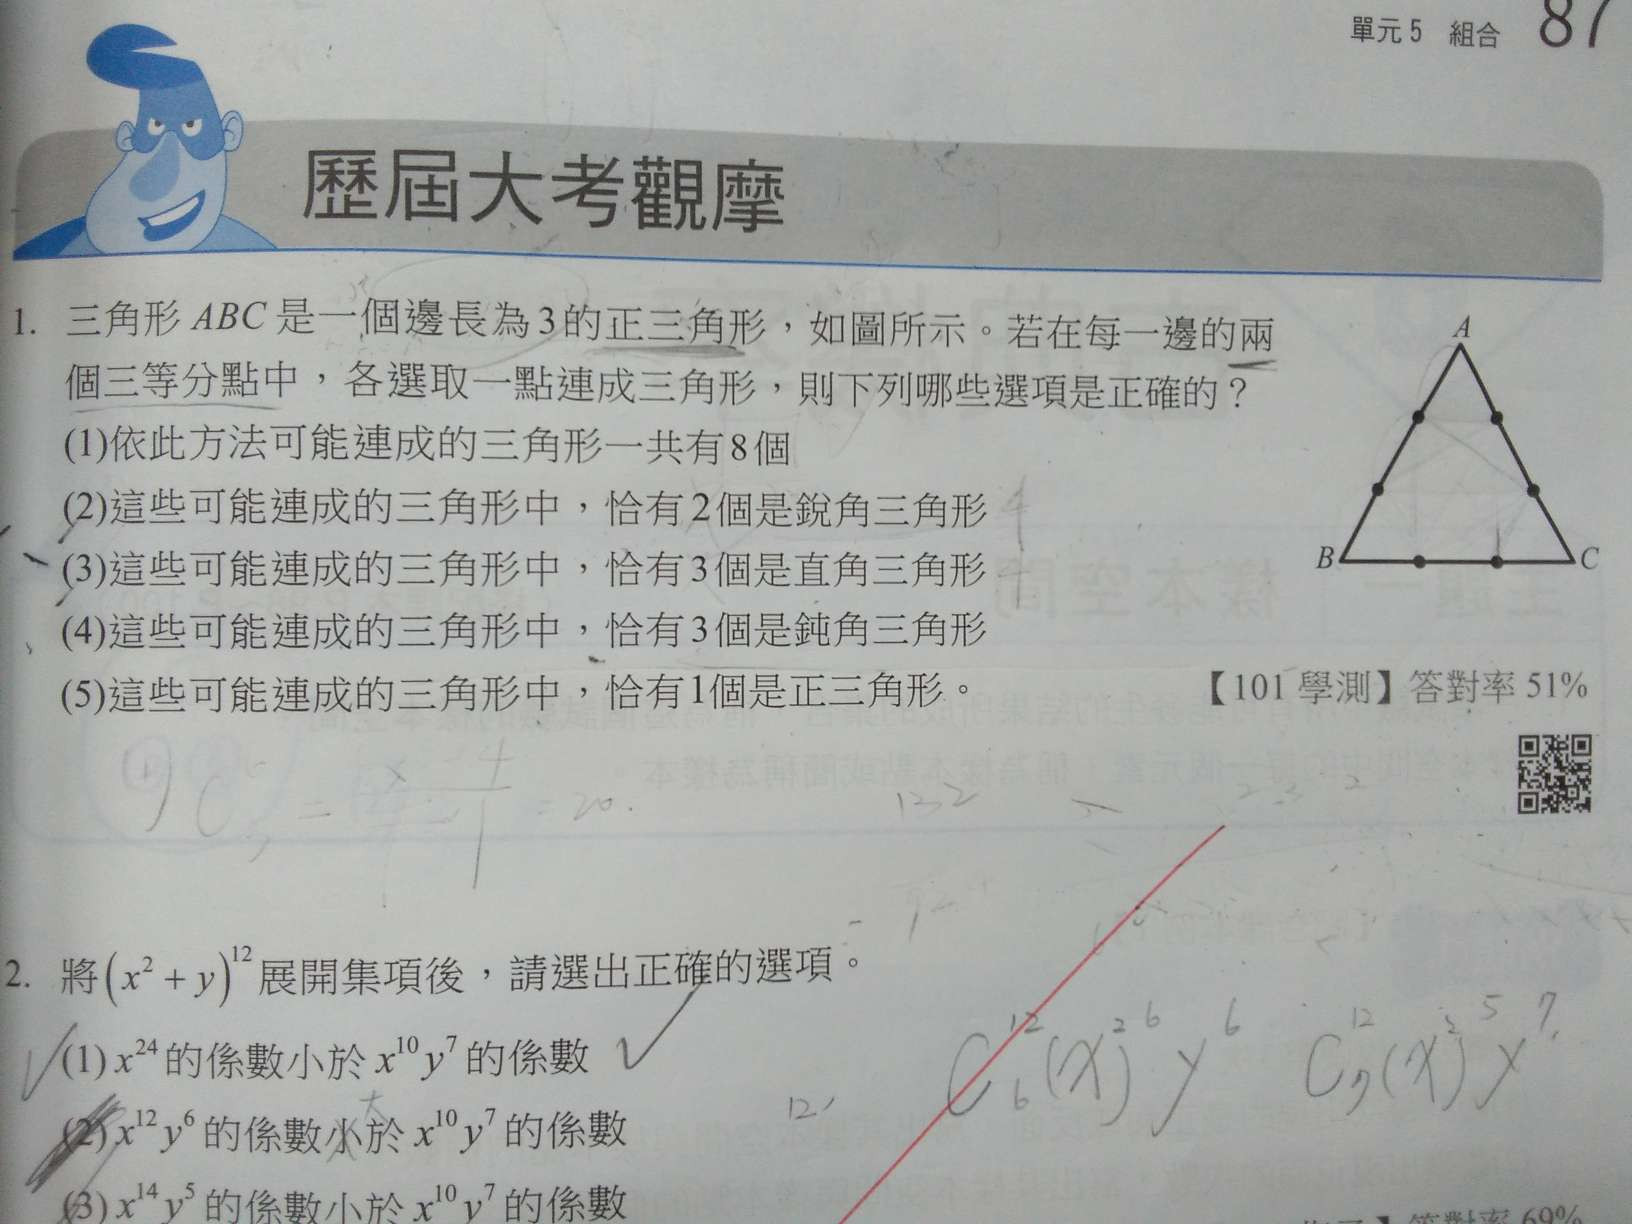 單元5 組合 87
歷屆大考觀摩
1. 三角形 ABC 是一個邊長為3的正三角形，如圖所示。若在每一邊的兩
個三等分點中，各選取一點連成三角形，則下列哪些選項是正確的？
(1)依此方法可能連成的三角形一共有8個
(2)這些可能連成的三角形中，恰有2個是銳角三角形
(3)這些可能連成的三角形中，恰有3個是直角三角形
(4)這些可能連成的三角形中，恰有3個是鈍角三角形
(5)這些可能連成的三角形中，恰有1個是正三角形。
【101 學測】答對率 51%
A
B
C
= 20.
2. 將(x²+y)¹²展開集項後，請選出正確的選項。
(1) x²⁴的係數小於 x¹⁰y⁷的係數
(2) x¹²y⁶的係數小於 x¹⁰y⁷的係數
大
(3) x¹⁴y⁵的係數小於 x¹⁰y⁷的係數
C¹²₆(x²)⁶y⁶
C¹²₇(x²)⁵y⁷
答對率 69%